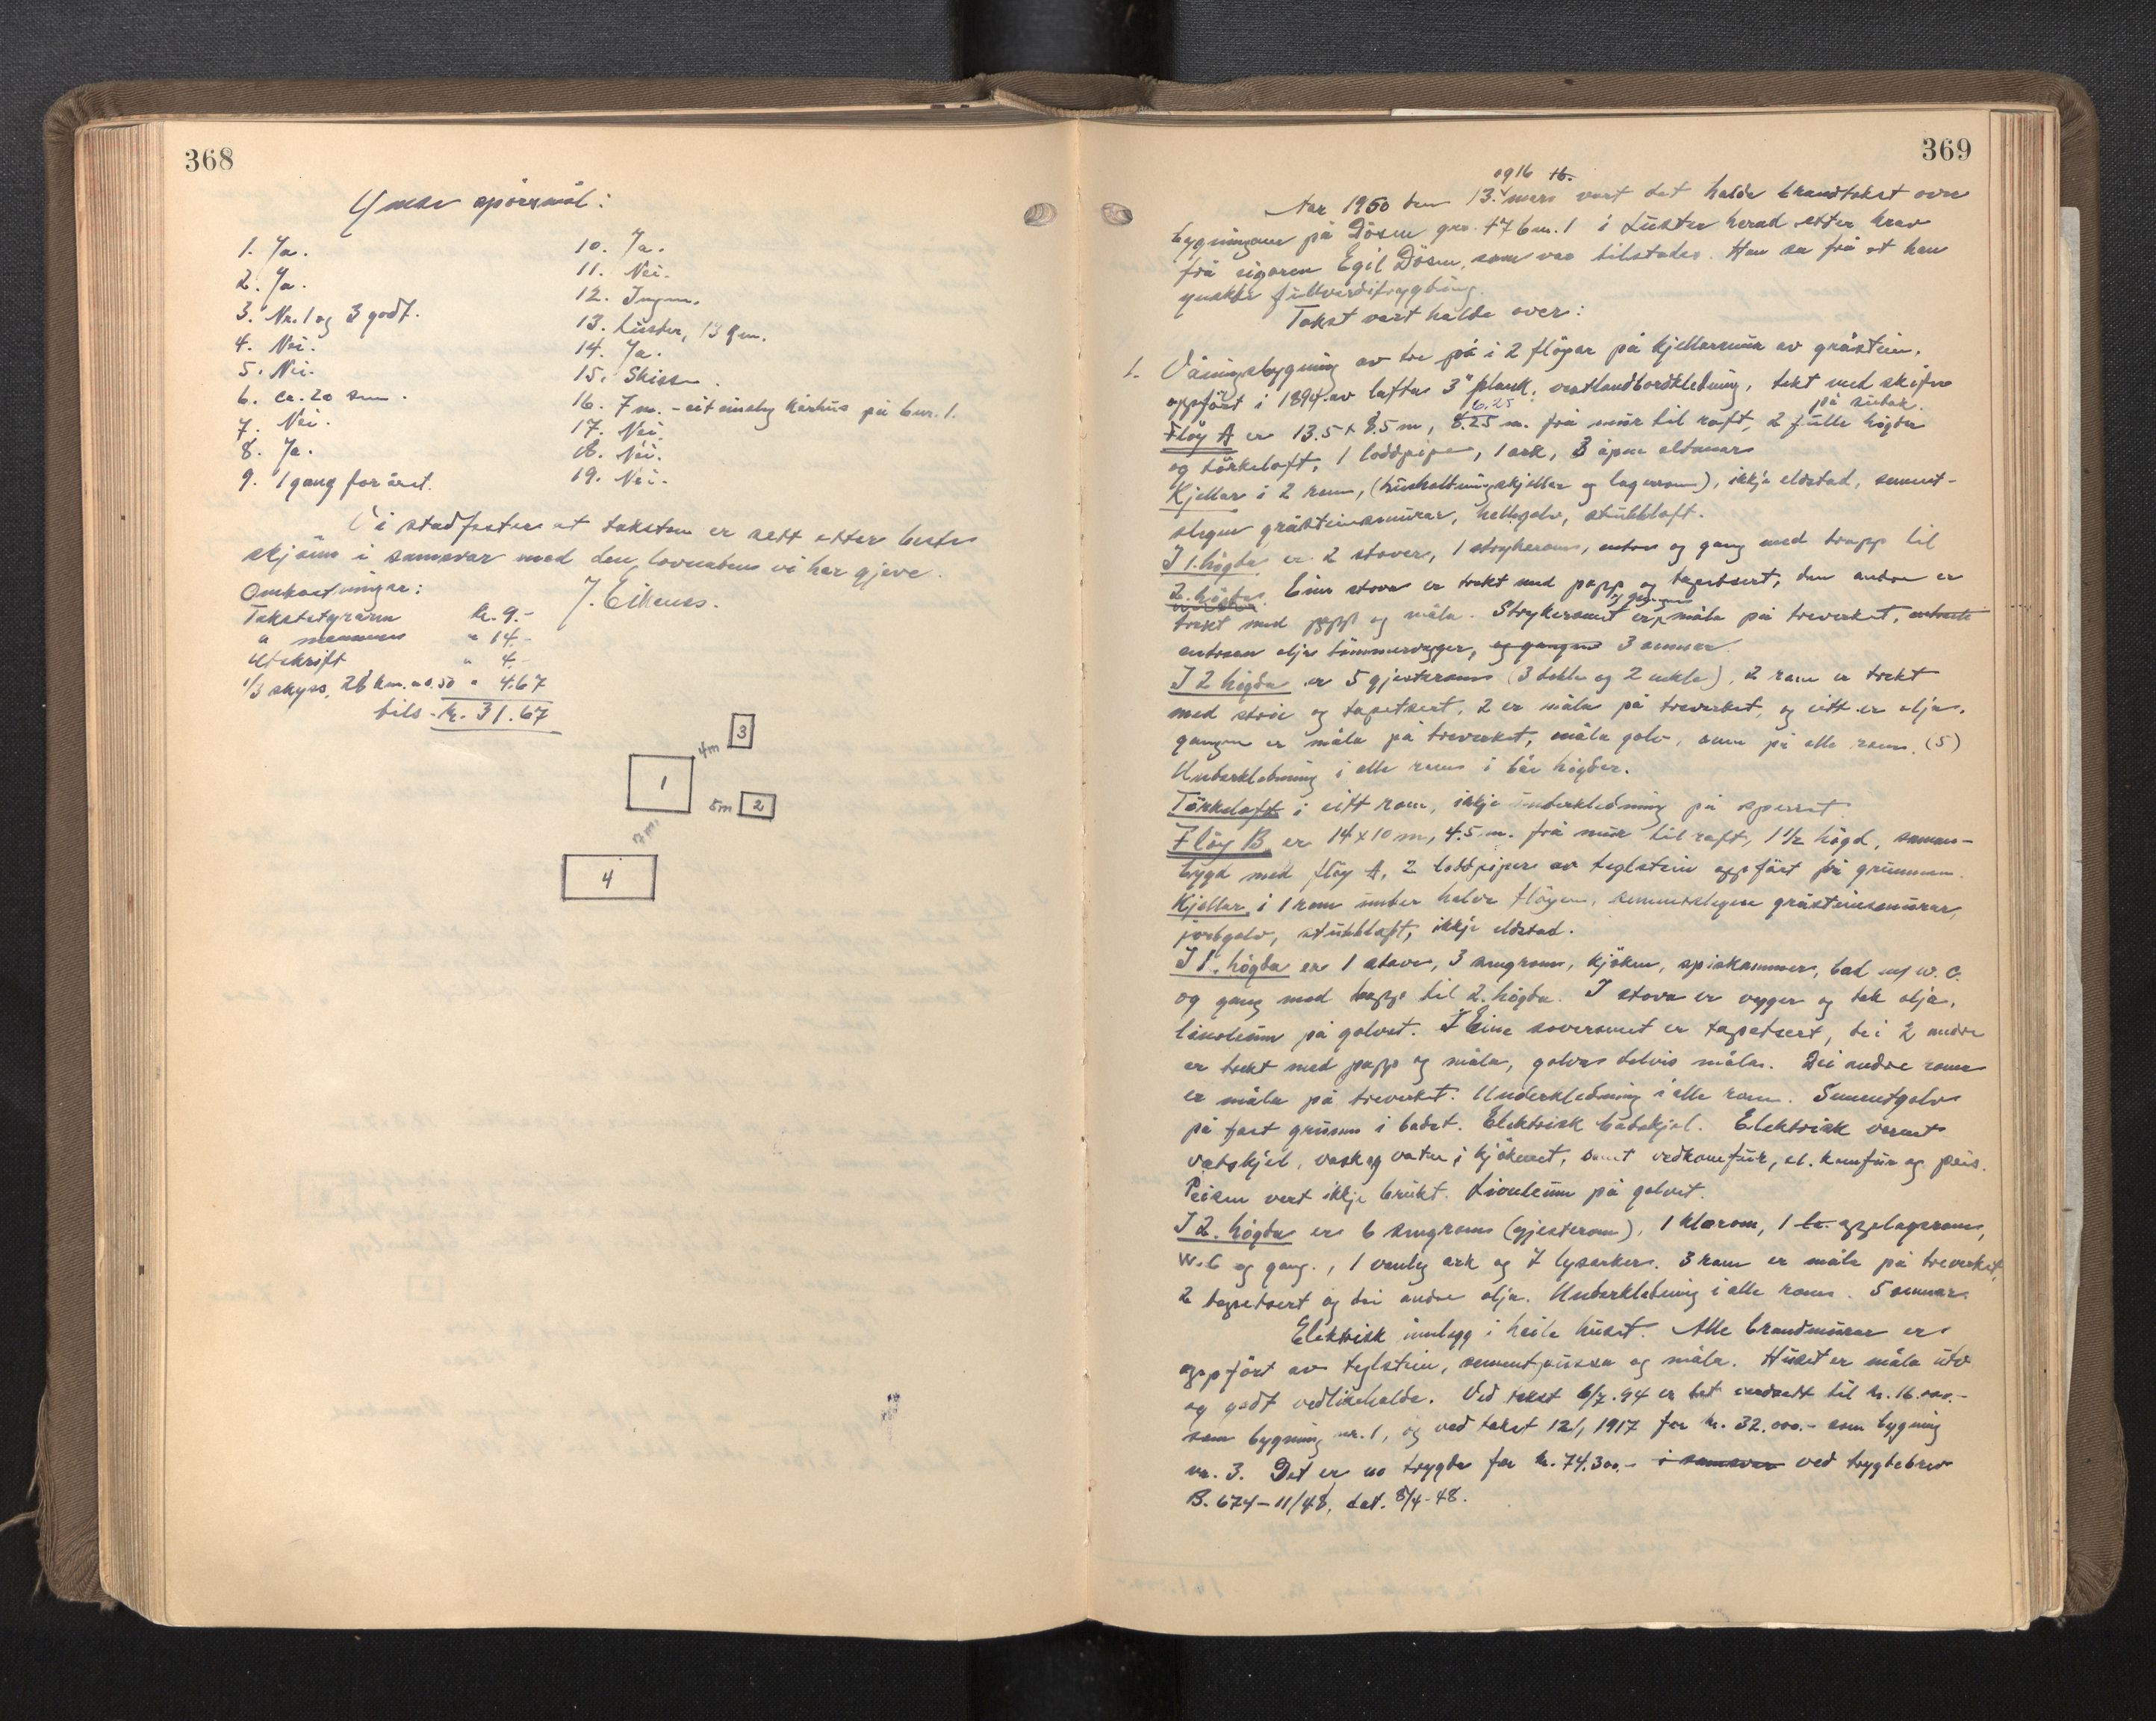 368
Ymse spörsmål:
1. Ja.
2. Ja.
3. Nr. 1 og 3 godt.
4. Nei.
5. Nei.
6. ca. 20 
7. Nei.
8. Ja.
9. 1 gang for året.
10. Ja.
11. Nei.
12. Ingen.
13. Luster, 13 km.
14. Ja.
15. Skisse.
16. 7 m. - eit einsleg hus på bnr. 1.
17. Nei.
18. Nei.
19. Nei.
Vi stadfester at taksten er sett etter beste
skjöun i samsvar med den lovnaden vi har gjeve.
Omkostningar: J. Eikenes.
Takststyraren kr. 9.-
" mennene " 14.-
Utskrift " 4.-
1/3 skyss, 28 km. a 0.50 " 4.67
tils. kr. 31.67
3
4m
1
5m 2
7m
4
369
og 16 
År 1950 den 13. mars vart det halde brandtakst over
bygningane på Dösen gnr. 77 bnr. 1 i Luster herad etter krav
frå eigaren Egil Dösen, som var tilstades. Han sa frå at han
ynskte fullverditrygding.
Takst vart halde over:
1. Våningsbygning av tre på i 2 flögar på kjellarmur av gråstein,
oppfört i 1894 av lafta 3" plank, vestlandbordkledning, tekt med skifer
på subak.
6.25
Flöy A er 13.5 x 8.5 m, 8.25 m. frå mur til raft, 2 fulle högder
og törkeloft, 1 loddpipe, 1 ark, 3 åpne altaner
Kjellar i 2 rom, (hushaltningskjellar og lagerrom), ikkje eldstad, sement-
slegne gråsteinsmurar, hellegolv, stubbloft.
I 1. högda er 2 stover, 1 strykerom, entre og gang med trapp til
2. högda. Eine stova er trekt med papp og tapetsert, den andre er
og gangen
trekt med papp og måla. Strykeromet er måla på treverket, entreen
entreen olja tömmervegger, og gangen 3 omnar.
I 2 högda er 5 gjesterom (3 doble og 2 enkle), 2 rom er trekt
med strie og tapetsert, 2 er måla på treverket, og eitt er olja.
gangen er måla på treverket, måla golv, omn på alle rom. (5)
Underkledning i alle rom i båe högder.
Törkeloft i eitt rom, ikkje underkledning på sperret.
Flöy B er 14 x 10 m, 4.5 m. frå mur til raft, 1 1/2 högd, saman-
bygd med flöy A, 2 loddpiper av teglstein oppfört frå grunnen.
Kjellar i 1 rom under halve flöyen, sementslegne gråsteinsmurar,
jordgolv, stubbloft, ikkje eldstad.
I 1. högda er 1 stove, 3 sengrom, kjöken, spiskammer, bad m/ w.c.
og gang med trapp til 2. högda. I stova er vegger og tak olja,
linoleum på golvet. I Eine soveromet er tapetsert, dei 2 andre
er trekt med papp og måla, golva delvis måla. Dei andre roma
er måla på treverket. Underkledning i alle rom. Sementgolv
på fast grunn i badet. Elektrisk badekjel. Elektrisk varmt
vatskjel, vask og vatn i kjökenet, samt vedkomfur, el. komfur og peis.
Peisen vert ikkje brukt. Linoleum på golvet.
I 2. högda er 6 sengrom (gjesterom), 1 klærom, 1 opplagsrom,
W.C og gang., 1 vanleg ark og 7 lysarker. 3 rom er måla på treverket,
2 tapetsert og dei andre olja. Underkledning i alle rom. 5 omnar
Elektrisk innlegg i heile huset. Alle brandmurar er
oppfört av teglstein, sementpussa og måla. Huset er måla utv.
og godt vedlikehalde. Ved takst 6/7.94 er det verdsett til kr. 16.000.-
som bygning nr. 1, og ved takst 12/1 1917 for kr. 32.000.- som bygning
nr. 3. Det er no trygda for kr. 74.300.- i samsvar ved trygdebrev
B. 674-11/48, dat. 8/4-48.